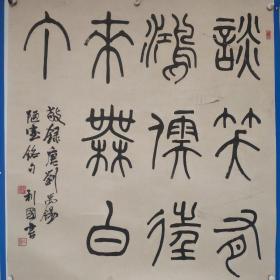 談笑有
鴻儒往
來無白
丁
敬録唐劉禹錫
陋室銘句 利國書